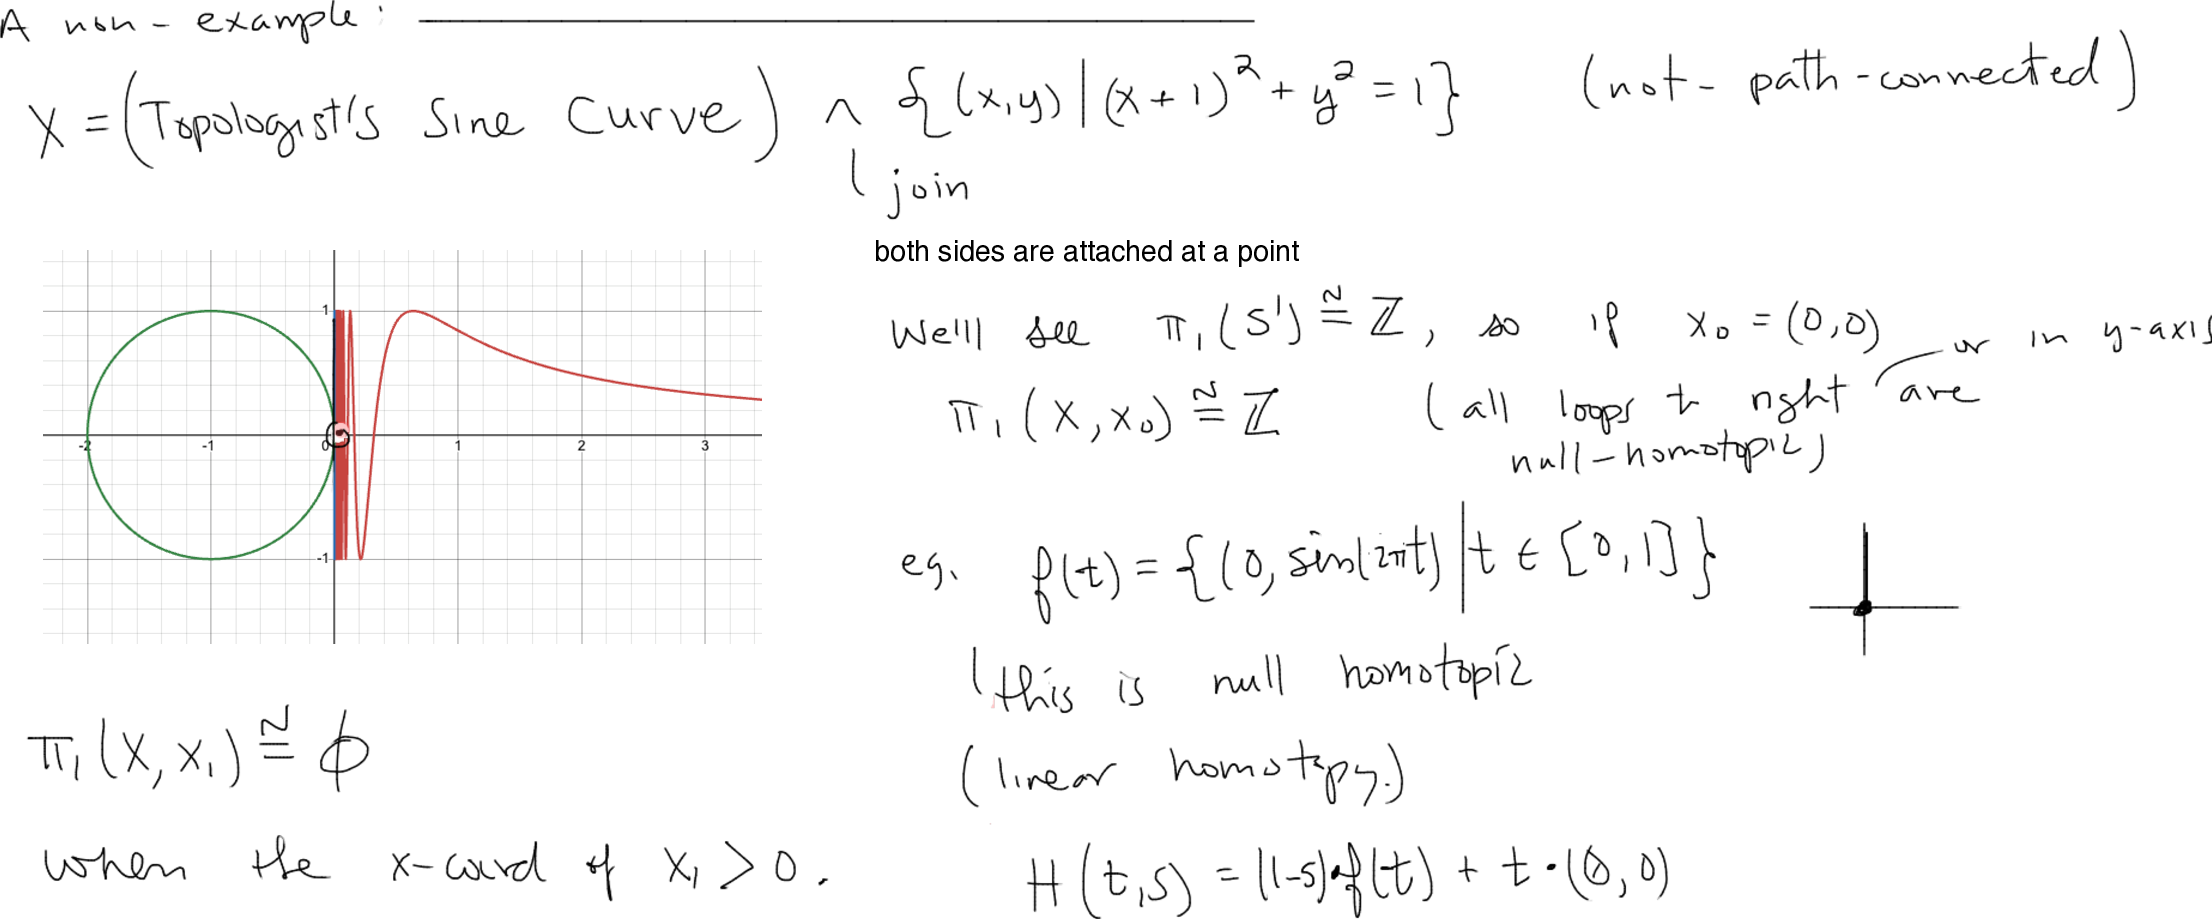 A non-example:
X = (Topologist's Sine Curve) ∧ {(x,y) | (x+1)² + y² = 1} (not-path-connected)
join
both sides are attached at a point
We'll see π₁(S¹) ≅ ℤ, so if x₀ = (0,0) or in y-axis
π₁(X, x₀) ≅ ℤ (all loops to right are
null-homotopic)
1
-2 -1 0 1 2 3
-1
eg. f(t) = {(0, sin(2πt) | t ∈ [0,1]}
this is null homotopic
π₁(X, x₁) ≅ ϕ
(linear homotopy.)
when the x-coord of x₁ > 0.
H(t,s) = (1-s)·f(t) + t·(0,0)